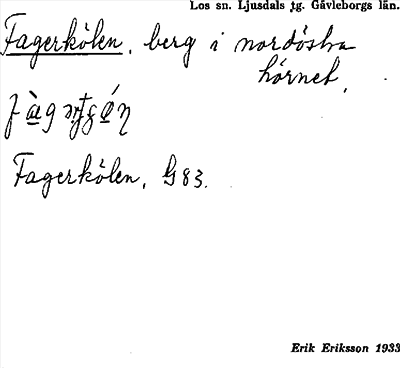 Los sn. Ljusdals tg. Gävleborgs län.
Fagerkölen, berg i nordöstra
hörnet.
Fagerkölen, G83.
Erik Eriksson 1933